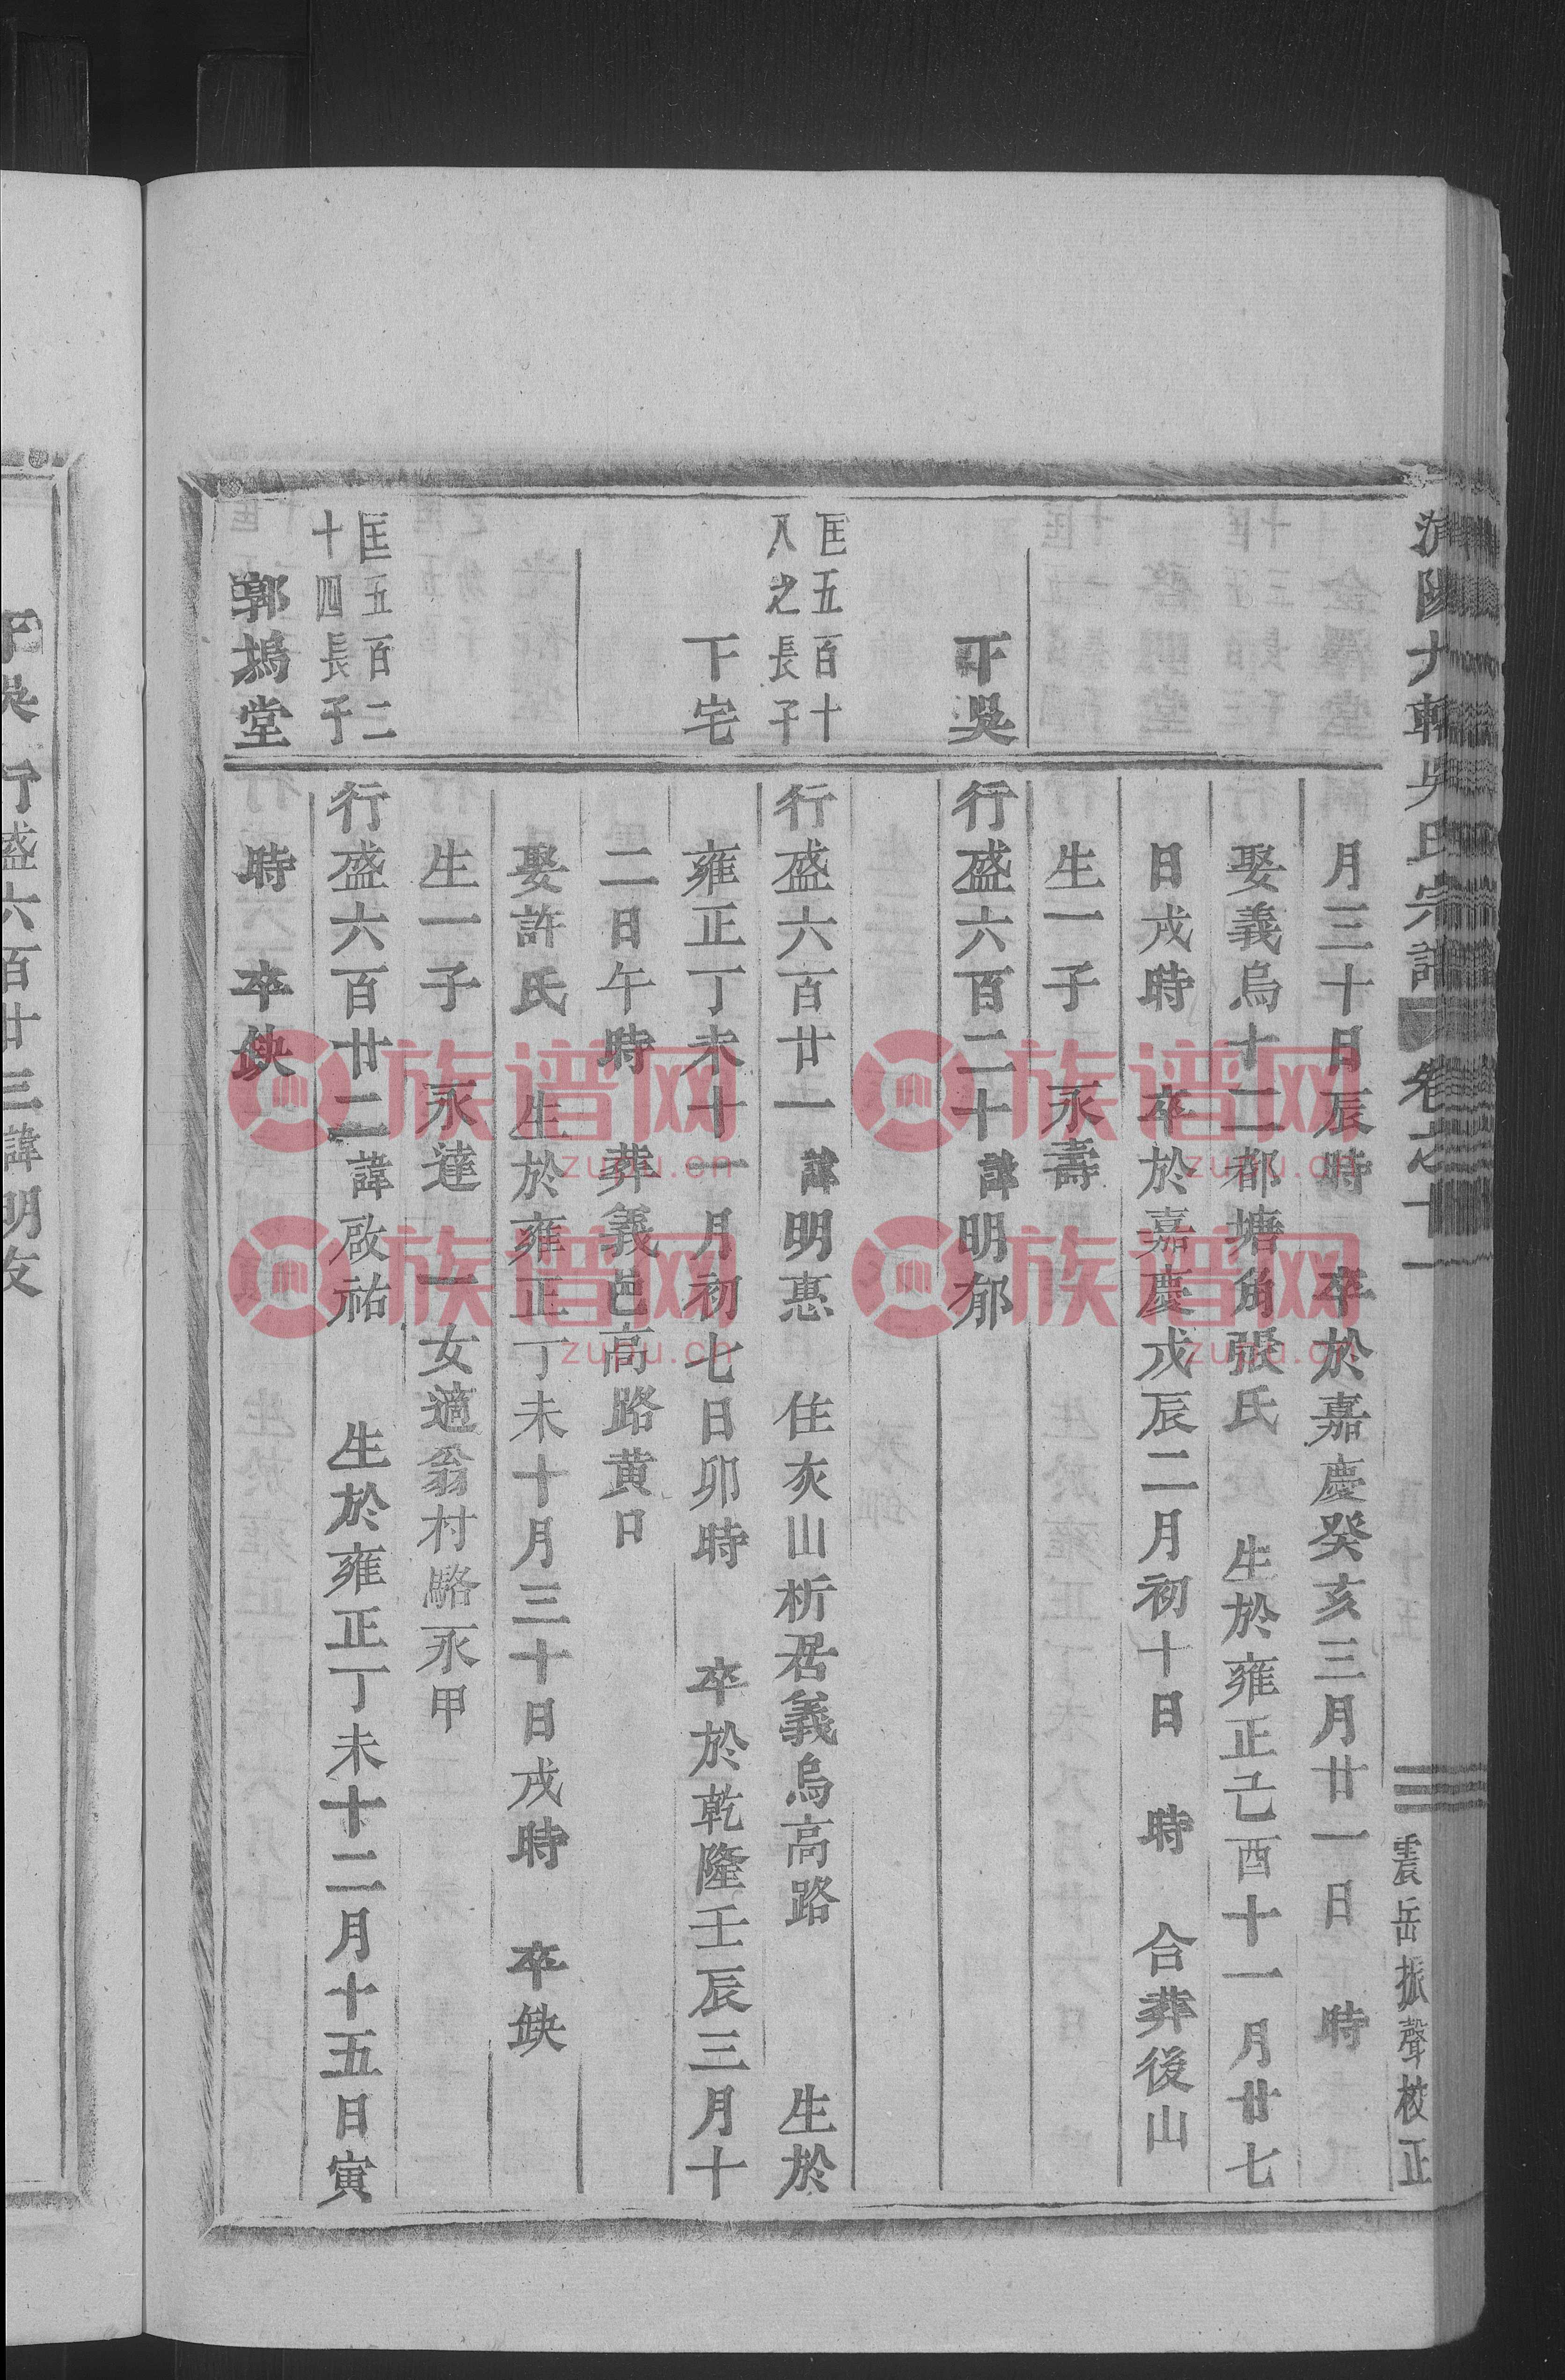 月三十日辰時 卒於嘉慶癸亥三月廿一日 時
娶義烏十二都塘角張氏 生於雍正己酉十一月廿七
日戌時 卒於嘉慶戊辰二月初十日 時 合葬後山
生一子 永壽
下吳
行盛六百二十諱明郁
匡五百十
八之長子
行盛六百廿一諱明惠 住灰山析居義烏高路 生於
下宅
雍正丁未十一月初七日卯時 卒於乾隆壬辰三月十
二日午時 葬義邑高路黄口
娶許氏 生於雍正丁未十月三十日戌時 卒缺
生一子 永達 一女適翁村駱永甲
匡五百二
十四長子
行盛六百廿二諱啟祐 生於雍正丁未十二月十五日寅
郭塢堂
時 卒缺
吳氏宗譜 卷之十一
震岳振聲校正
下吳 行盛六百廿三諱明友
族谱网
zupu.cn
族谱网
zupu.cn
族谱网
zupu.cn
族谱网
zupu.cn